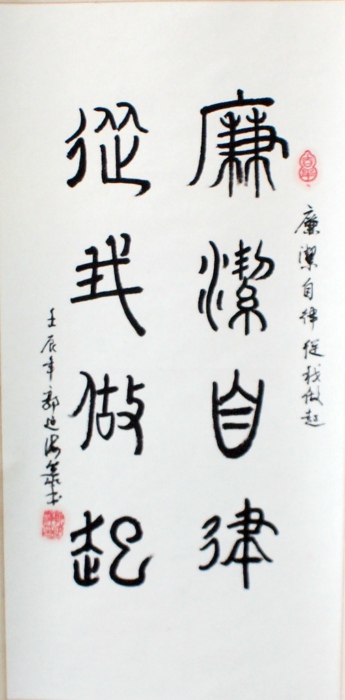 廉潔自律從我做起
廉潔自律
從我做起
壬辰年郭延海篆书